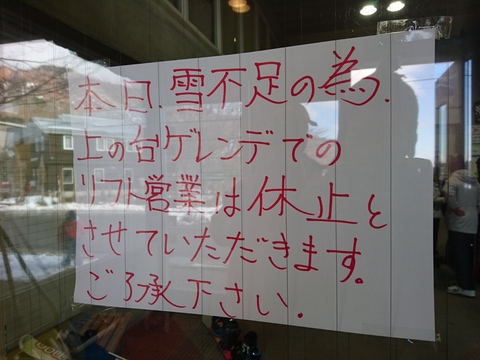 本日、雪不足の為、
上の台ゲレンデでの
リフト営業は休止と
させていただきます。
ご了承下さい。